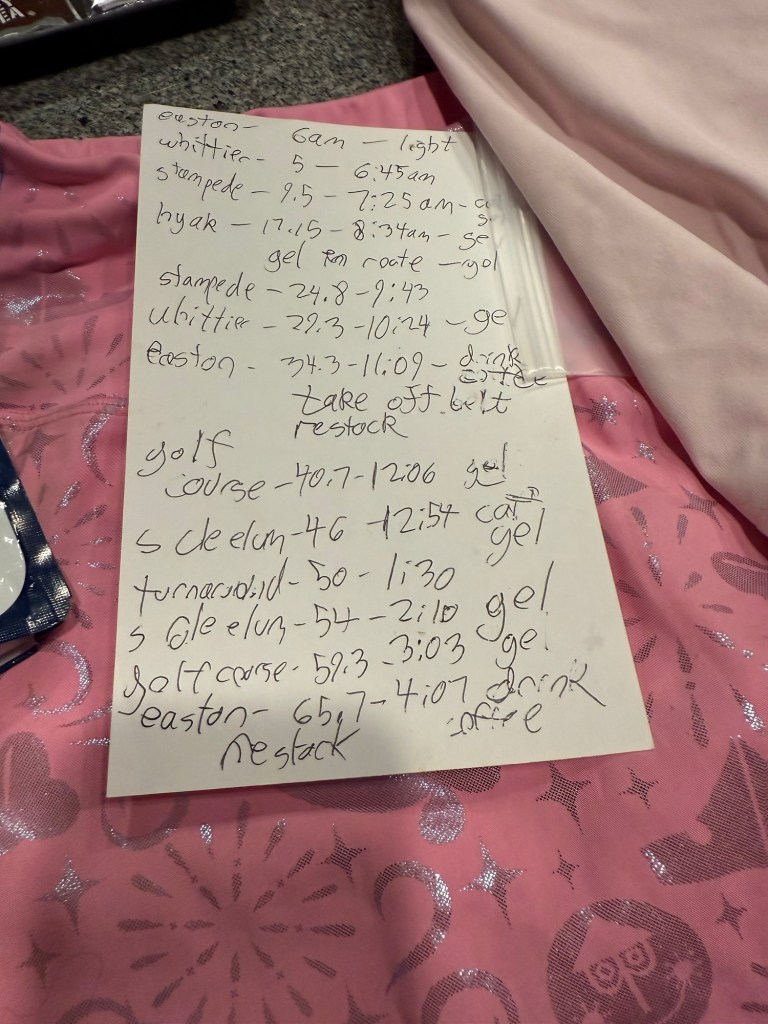 EA.
easton - 6am - light
whittier - 5 - 6:45am
stampede - 9.5 - 7:25am -
hyak - 17.15 - 8:34am - se
gel en route - gol
stampede - 24.8 - 9:43
whittier - 29.3 - 10:24 - ge
easton - 34.3 - 11:09 - drink
coffee
take off belt
restock
golf
course - 40.7 - 12:06 gel
s cle elum - 46 - 12:54
gel
turnaround - 50 - 1:30
s cle elum - 54 - 2:10 gel
golf course - 59.3 - 3:03 gel
easton - 65.7 - 4:07 drink
restock coffee